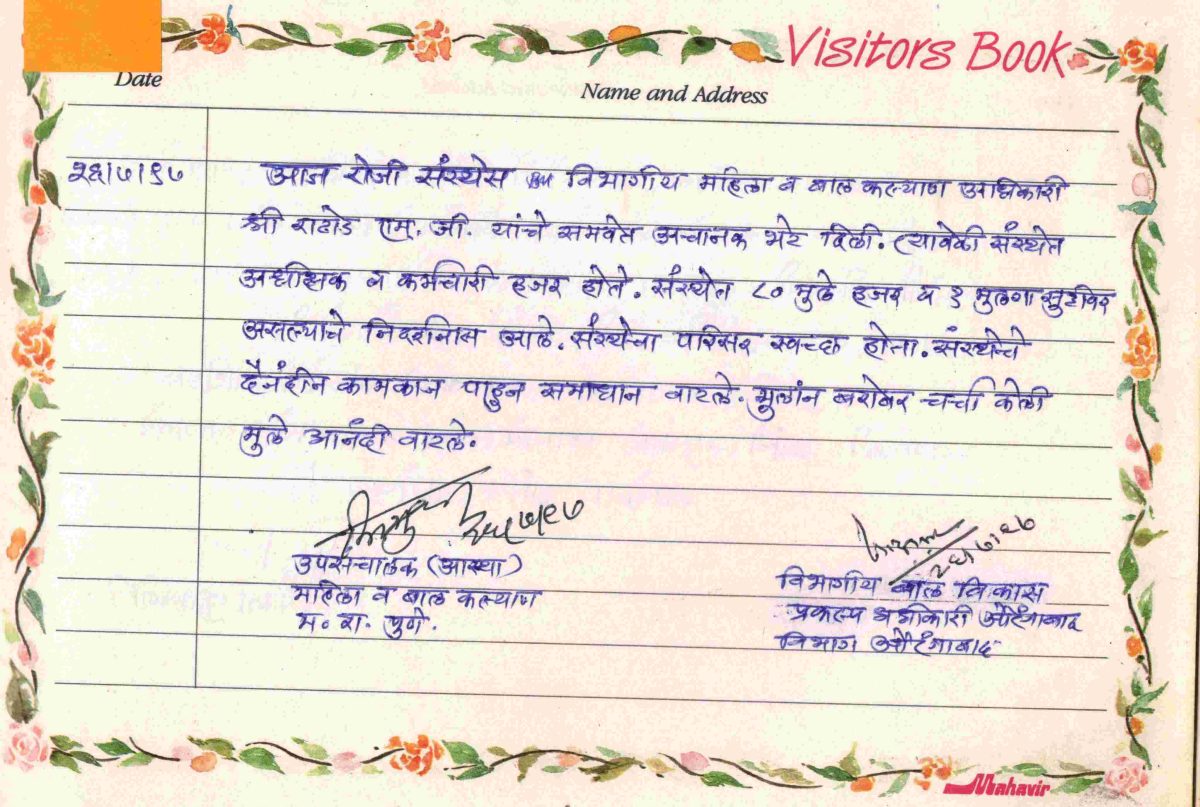 Visitors Book
Date
Name and Address
२६/७/९७ आज रोजी संस्थेस विभागीय महिला व बाल कल्याण अधिकारी
श्री राठोड एम्. जी. यांचे समवेत अचानक भेट दिली. त्यावेळी संस्थेत
अधीक्षक व कर्मचारी हजर होते. संस्थेत ८० मुले हजर व १ मुलगा सुटीवर
असल्याचे निदर्शनास आले. संस्थेचा परिसर स्वच्छ होता. संस्थेचे
दैनंदीन कामकाज पाहुन समाधान वाटले. मुलांन बरोबर चर्चा केली
मुले आनंदी वाटले.
२६/७/९७
उपसंचालक (आस्था) विभागीय बाल विकास
महिला व बाल कल्याण प्रकल्प अधिकारी औरंगाबाद
म. रा. पुणे. विभाग औरंगाबाद
Mahavir